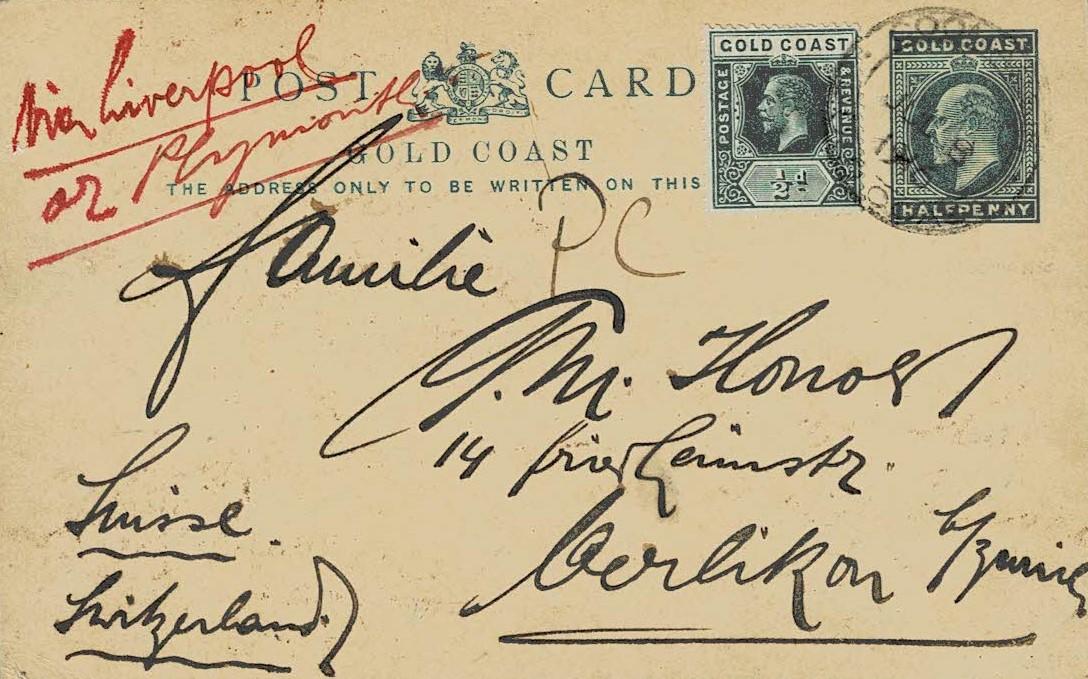 Via Liverpool
or Plymouth
POST CARD
GOLD COAST
THE ADDRESS ONLY TO BE WRITTEN ON THIS
GOLD COAST
POSTAGE
& REVENUE
½d
GOLD COAST
HALFPENNY
PC
Familie
J. M.
14
Oerlikon b/Zurich
Suisse.
Switzerland